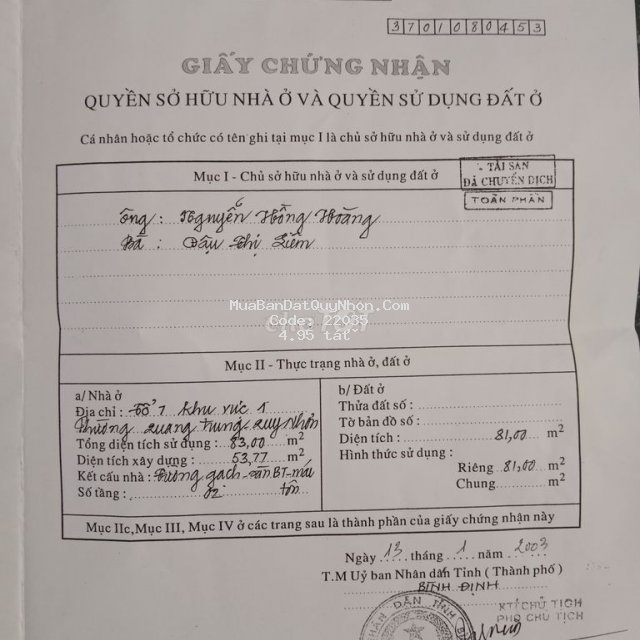 3701080453
GIẤY CHỨNG NHẬN
QUYỀN SỞ HỮU NHÀ Ở VÀ QUYỀN SỬ DỤNG ĐẤT Ở
Cá nhân hoặc tổ chức có tên ghi tại mục I là chủ sở hữu nhà ở và sử dụng đất ở
Mục I - Chủ sở hữu nhà ở và sử dụng đất ở
TÀI SẢN
ĐÃ CHUYỂN DỊCH
TOÀN PHẦN
Ông : Nguyễn Hồng Hoàng
Bà : Đậu Thị Liêm
MuaBanDatQuyNhon.Com
Code: 22035
4.95 tất
Mục II - Thực trạng nhà ở, đất ở
a/ Nhà ở
Địa chỉ : Tổ 7 khu vực 1
Phường Quang Trung - Quy Nhơn
Tổng diện tích sử dụng : 83,00 m2
Diện tích xây dựng : 53,77 m2
Kết cấu nhà : Tường gạch - sàn BT - mái
tôn
Số tầng : 02
b/ Đất ở
Thửa đất số :
Tờ bản đồ số :
Diện tích : 81,00 m2
Hình thức sử dụng :
Riêng 81,00 m2
Chung m2
Mục IIc, Mục III, Mục IV ở các trang sau là thành phần của giấy chứng nhận này
Ngày 13 tháng 1 năm 2003
T.M Uỷ ban Nhân dân Tỉnh ( Thành phố )
BÌNH ĐỊNH
KT/CHỦ TỊCH
PHÓ CHỦ TỊCH
NHÂN DÂN TỈNH